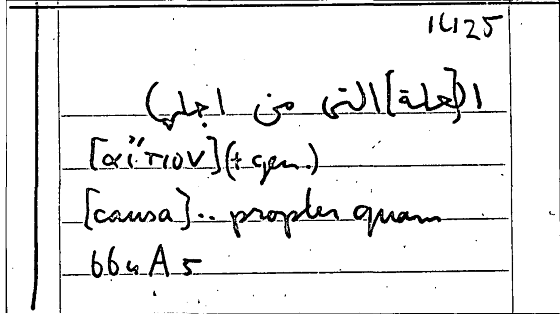 1425
ا(لعلة] التي من اجلها)
[αἴτιον] (+ gen.)
[causa] .. propter quam
66u A 5